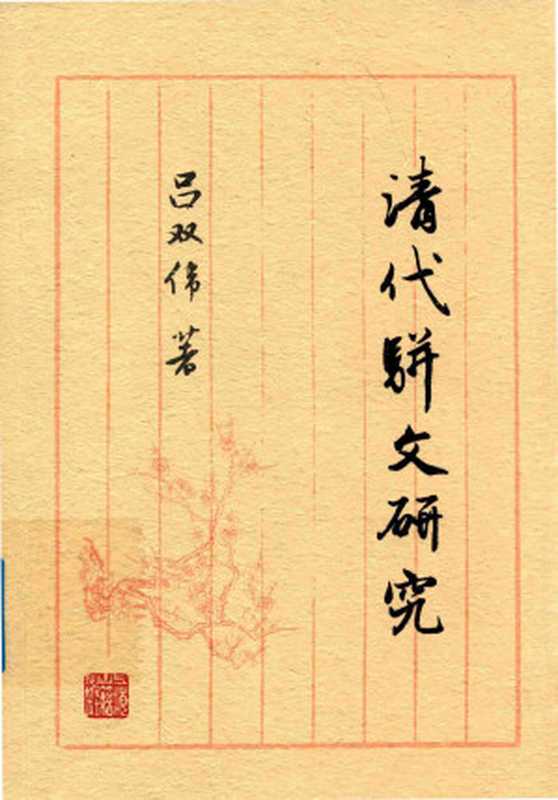 清代駢文研究
吕双伟 著